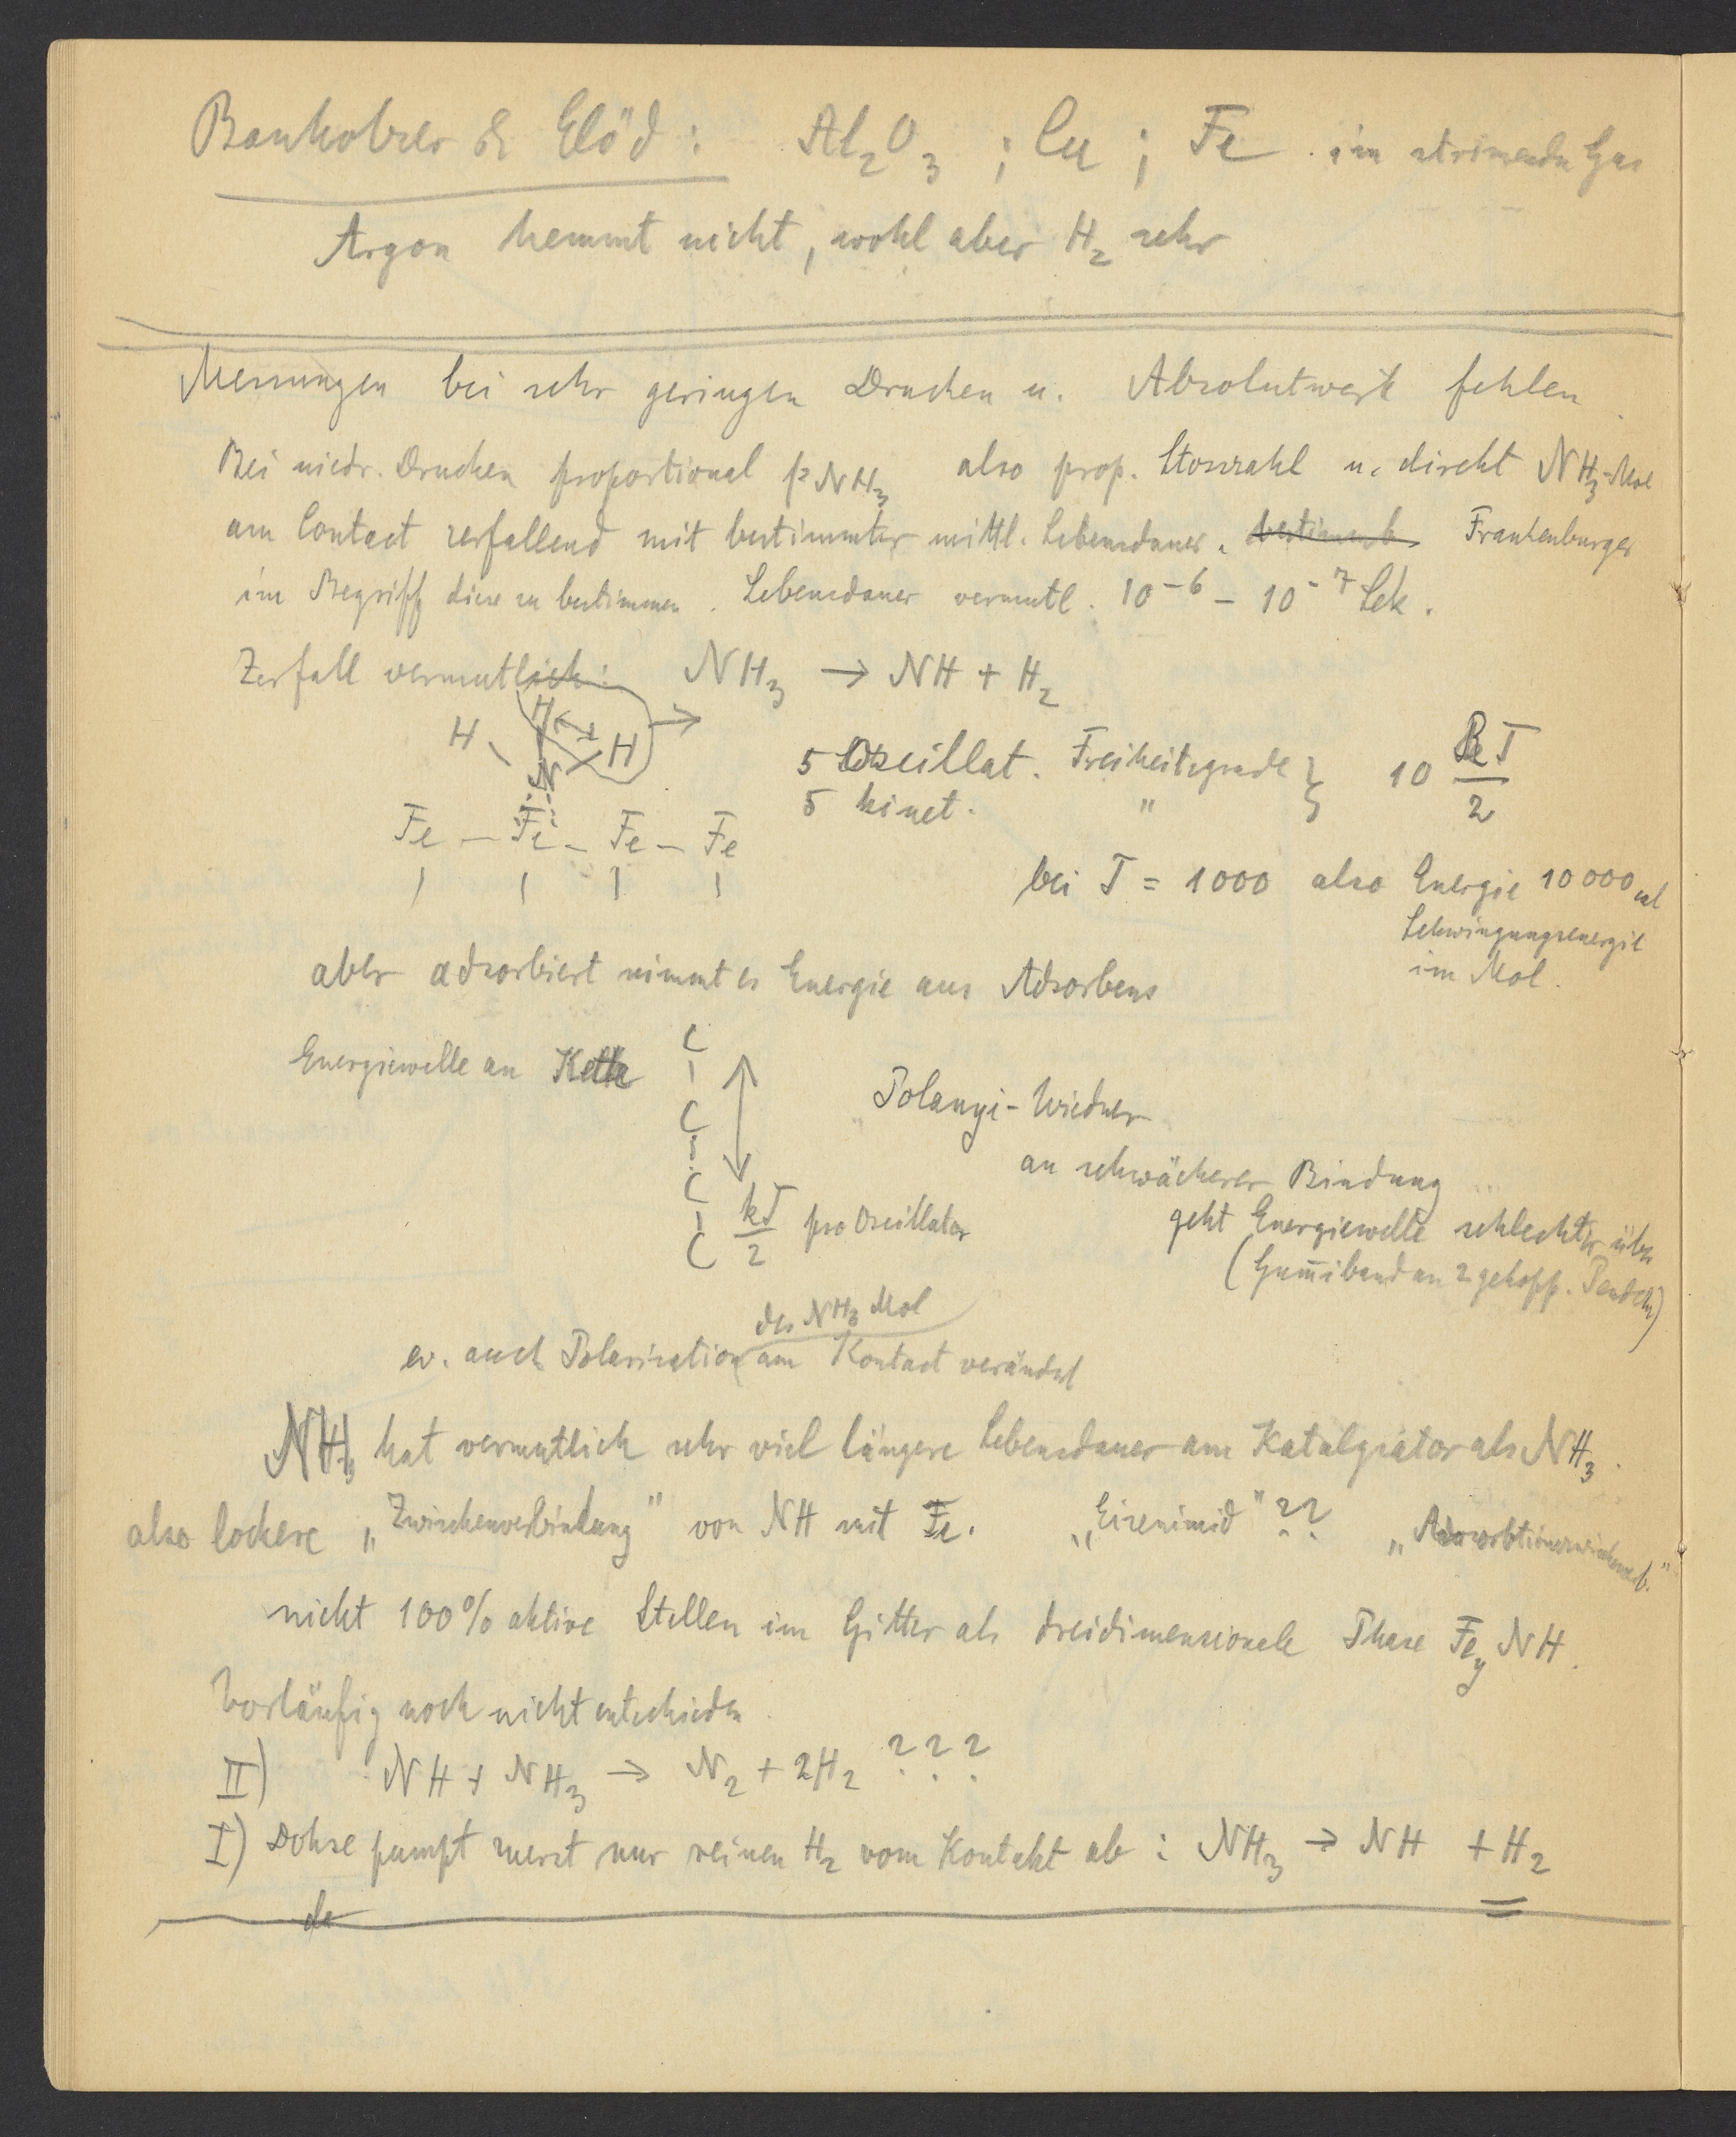 Banholzer & Elöd : Al₂O₃ ; Cu ; Fe im strömenden Gas
Argon hemmt nicht, wohl aber H₂ sehr
Messungen bei sehr geringen Drucken u. Absolutwerte fehlen
Bei niedr. Drucken proportional p NH₃ also prop. Stosszahl u. direkt NH₃-Mol
am Contact zerfallend mit bestimmter mittl. Lebensdauer. Frankenburger
im Begriff diese zu bestimmen. Lebensdauer vermutl. 10⁻⁶ – 10⁻⁷ Sek.
Zerfall vermutlich: NH₃ → NH + H₂
H H H →
N
Fe – Fe – Fe – Fe
5 Oscillat. Freiheitsgrade } 10 RT/2
5 kinet. "
bei T = 1000 also Energie 10000 cal
Schwingungsenergie
im Mol.
aber adsorbiert nimmt es Energie aus Adsorbens
Energiewelle an Kette
C
C
C
C
kT/2 pro Oscillator
Polanyi-Wiedner
an schwächerer Bindung
geht Energiewelle schlechter über
(Gum̅iband an 2 gekopp. Pendeln)
des NH₃ Mol
ev. auch Polarisation am Kontact verändert
NH hat vermutlich sehr viel längere Lebensdauer am Katalysator als NH₃.
also lockere „Zwischenverbindung" von NH mit Fe. „Eisenimid" ?? „Adsorbtionszwischenverb."
nicht 100% aktive Stellen im Gitter als dreidimensionale Phase Fe_y NH.
Vorläufig noch nicht entschieden
II) NH + NH₃ → N₂ + 2H₂ ???
I) Dohse pumpt zuerst nur reinen H₂ vom Kontakt ab : NH₃ → NH + H₂
de